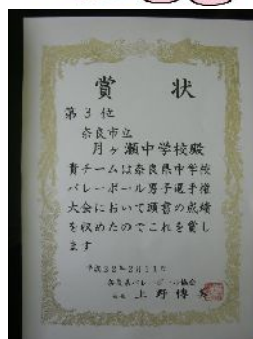 賞状
第3位
奈良市立
月ヶ瀬中学校殿
貴チームは奈良県中学校
バレーボール男子選手権
大会において頭書の成績
を収めたのでこれを賞し
ます
平成22年2月11日
奈良県バレーボール協会
会長 上野博